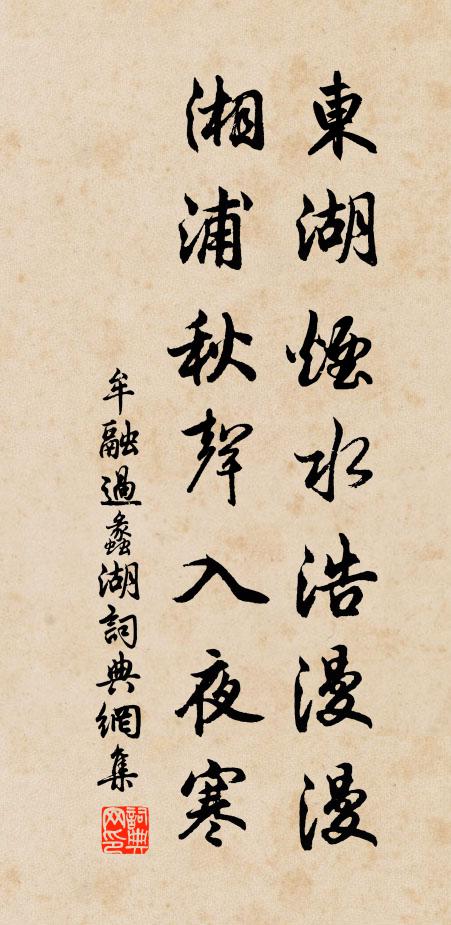 東湖煙水浩漫漫
湘浦秋聲入夜寒
牟融過蠡湖詞典網集
詞典網印